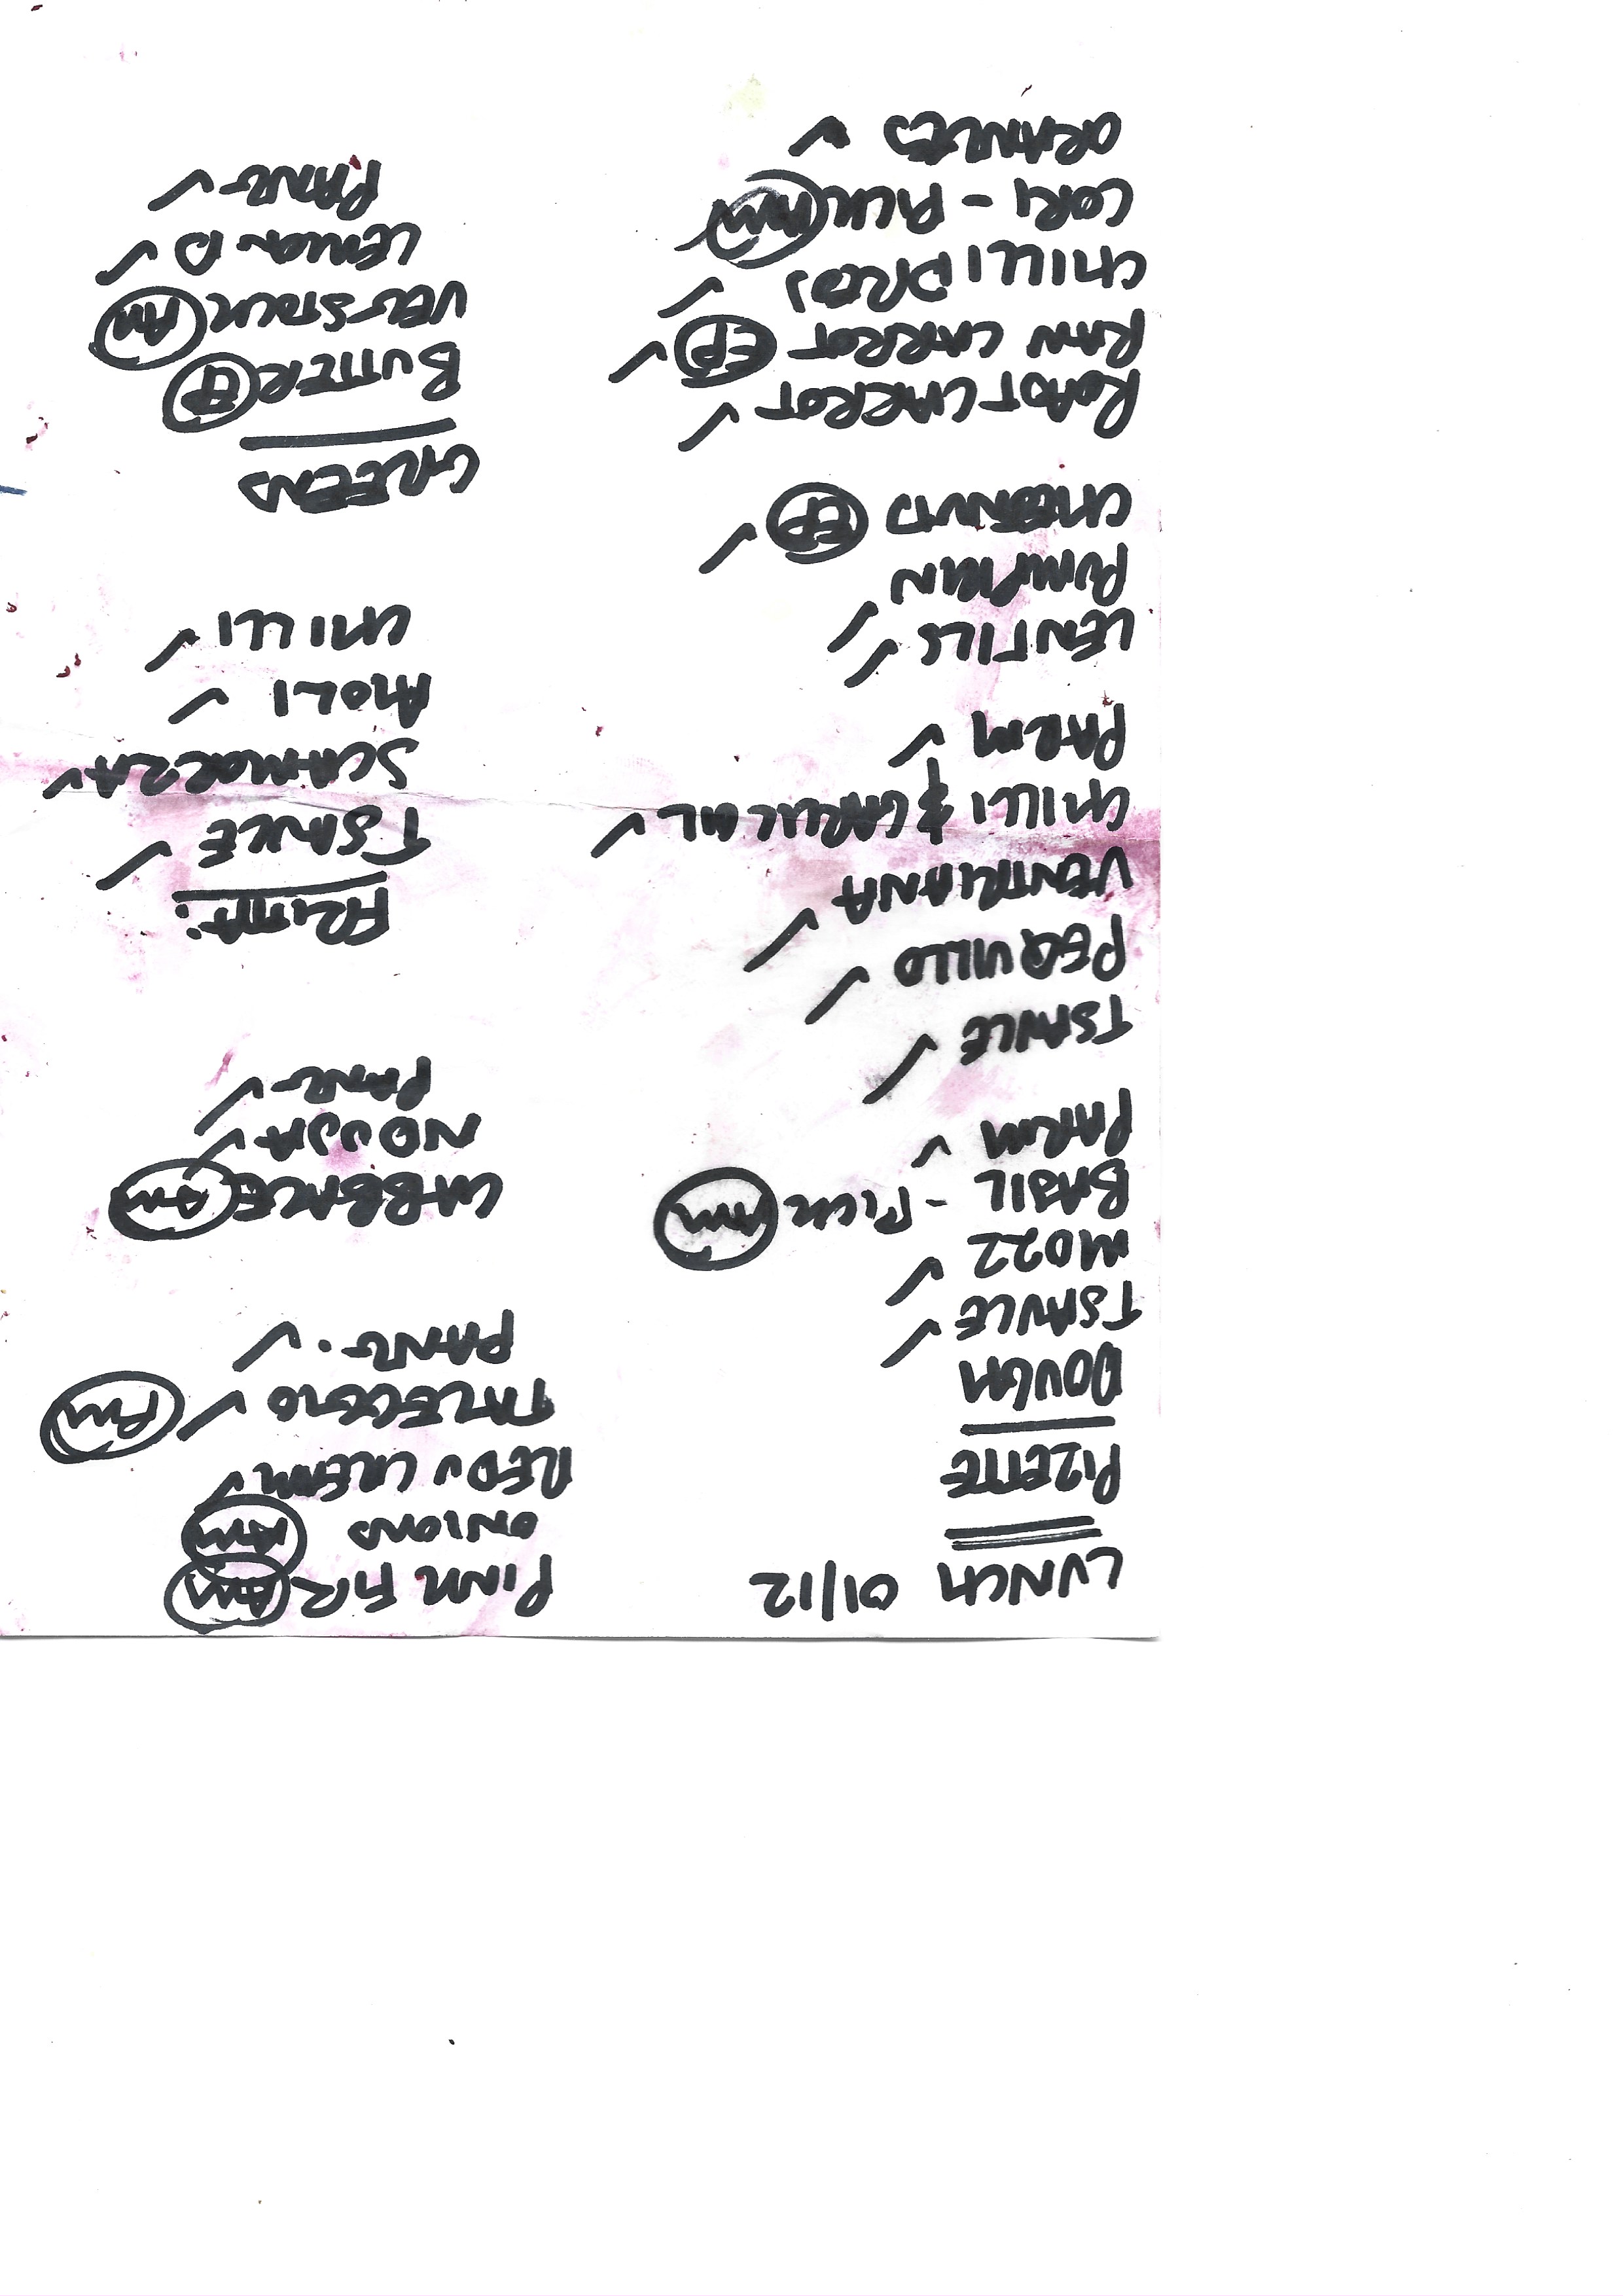 LUNCH 01/12
PIZETTE
DOUGH
TSAUCE ✓
MOZZ ✓
BASIL - PICK AM
PARM ✓
TSAUCE ✓
PEQUILLO ✓
VENTRIANA ✓
CHILLI & GARLIC OIL ✓
PARM ✓
LENTILS ✓
PUMPKIN ✓
CHESNUTS EP ✓
ROAST CARROT ✓
RAW CARROT EP ✓
CHILLI DRESS ✓
CORI - PICK AM ✓
ORANGES ✓
PINK FIR AM
ONIONS AM
REDU CREAM ✓
TALEGGIO ✓ PM
PANG. ✓
CABBAGE AM
NDUJA ✓
PANG ✓
FRITTI:
TSAUCE ✓
SCAMORZA ✓
AIOLI ✓
CHILLI ✓
GREENS
BUTTER EP
VEG STOCK AM
LEMON D ✓
PANG ✓